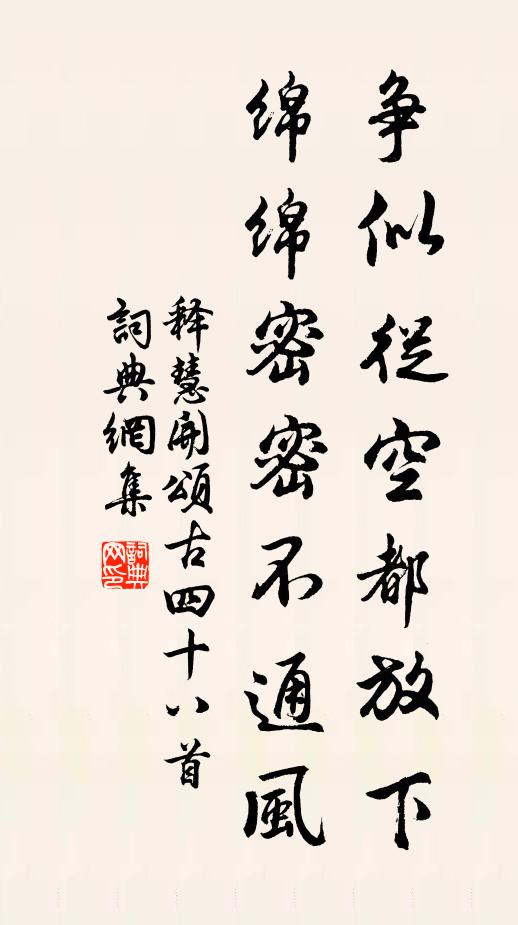 争似從空都放下
绵绵密密不通風
释慧開頌古四十八首
詞典網集
詞典网印